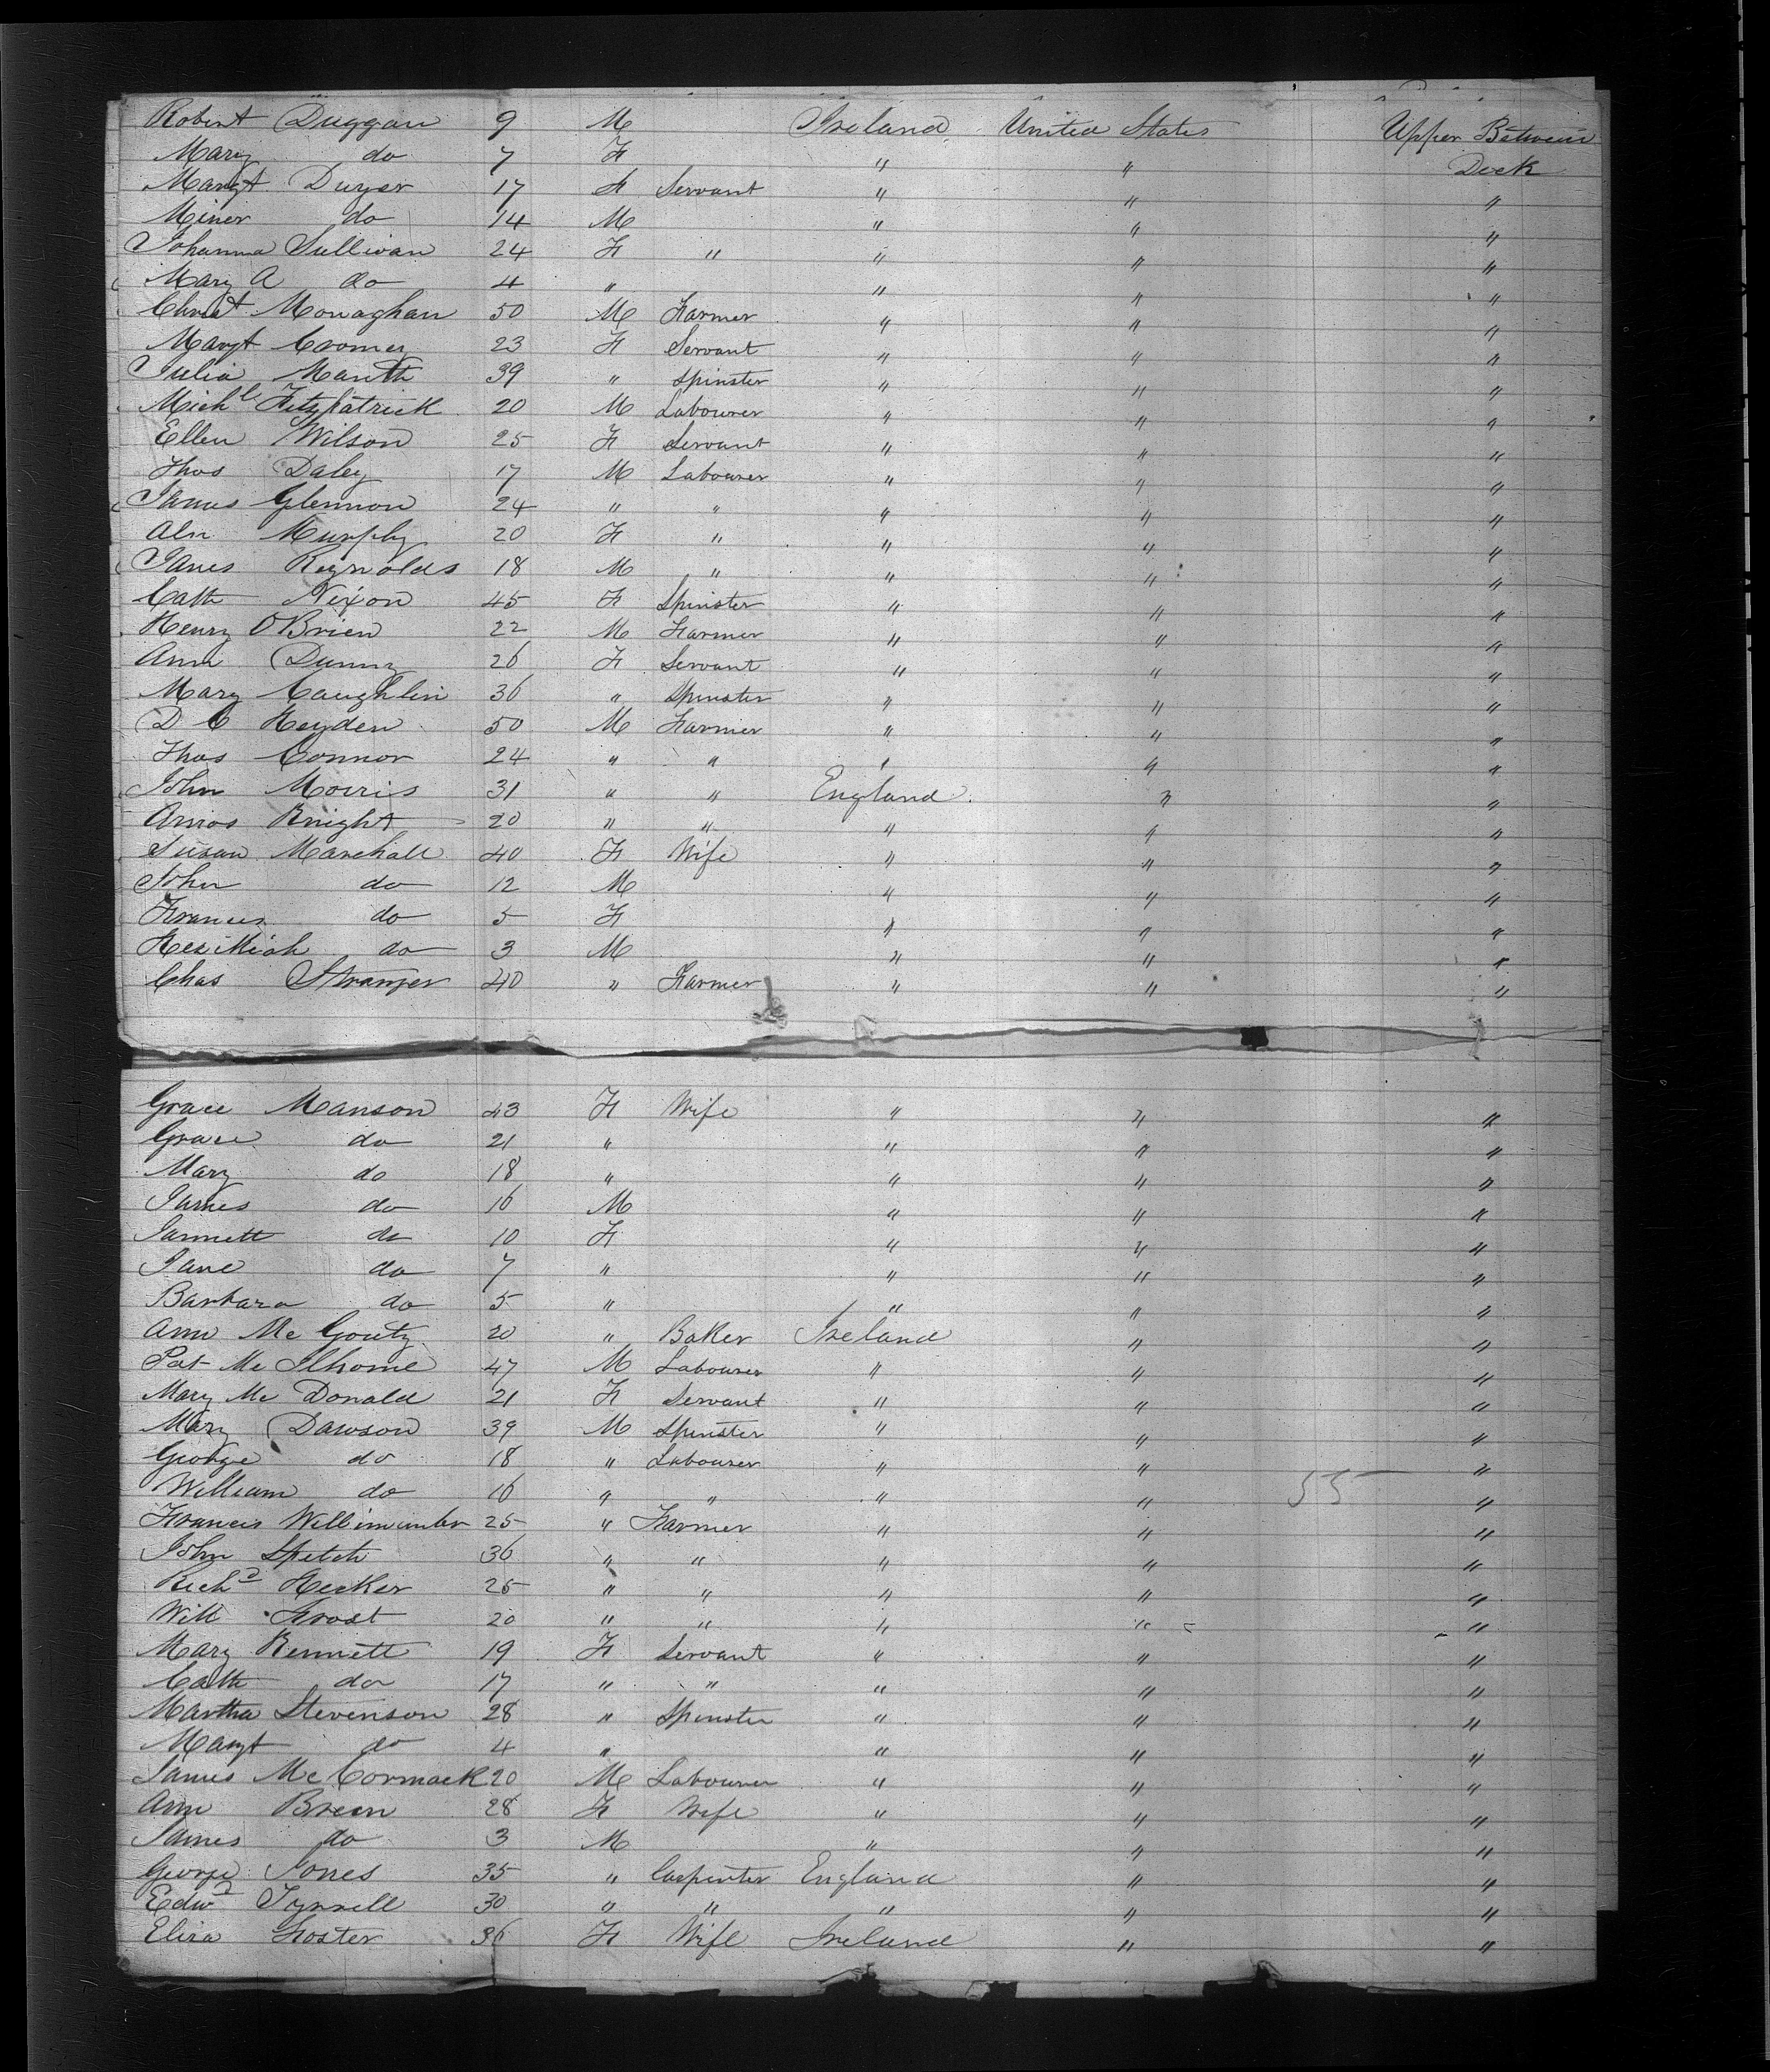 Robert Duggan 9 M Ireland United States Upper Between
Mary do 7 F " " Deck
Margt Dwyer 17 F Servant " " "
Miner do 14 M " " "
Johanna Sullivan 24 F " " " "
Mary A do 4 " " " "
Christ Monaghan 50 M Farmer " " "
Margt Cromer 23 F Servant " " "
Julia 39 " Spinster " " "
Michl Fitzpatrick 20 M Labourer " " "
Ellen Wilson 25 F Servant " " "
Thos Daley 17 M Labourer " " "
James Glennon 24 " " " " "
Murphy 20 F " " " "
James Reynolds 18 M " " " "
Cath Nixon 45 F Spinster " " "
Henry O'Brien 22 M Farmer " " "
Ann Dunny 26 F Servant " " "
Mary Caughlin 36 " Spinster " " "
D C Heyden 50 M Farmer " " "
Thos Connor 24 " " " " "
John Morris 31 " " England " "
Amos Knight 20 " " " " "
Susan Marchall 40 F Wife " " "
John do 12 M " " "
Frances do 5 F " " "
do 3 M " " "
Chas Stranger 40 " Farmer " " "
Grace Manson 43 F Wife " " "
Grace do 21 " " " "
Mary do 18 " " " "
James do 16 M " " "
Jannett do 10 F " " "
Jane do 7 " " " "
Barbara do 5 " " " "
Ann Mc Gouty 20 " Baker Ireland " "
Pat Mc Ilhome 47 M Labourer " " "
Mary Mc Donald 21 F Servant " " "
Mary Dawson 39 M Spinster " " "
George do 18 " Labourer " " "
William do 16 " " " " 55 "
Francis 25 " Farmer " " "
John Spetch 36 " " " " "
Richd Hecker 25 " " " " "
Will Frost 20 " " " " "
Mary Bennett 19 F Servant " " "
Cath do 17 " " " " "
Martha Stevenson 28 " Spinster " " "
Margt do 4 " " " "
James Mc Cormack 20 M Labourer " " "
Ann Breen 28 F Wife " " "
James do 3 M " " "
George Jones 35 " Carpenter England " "
Edwd Tyrrell 30 " " " " "
Eliza Foster 36 F Wife Ireland " "